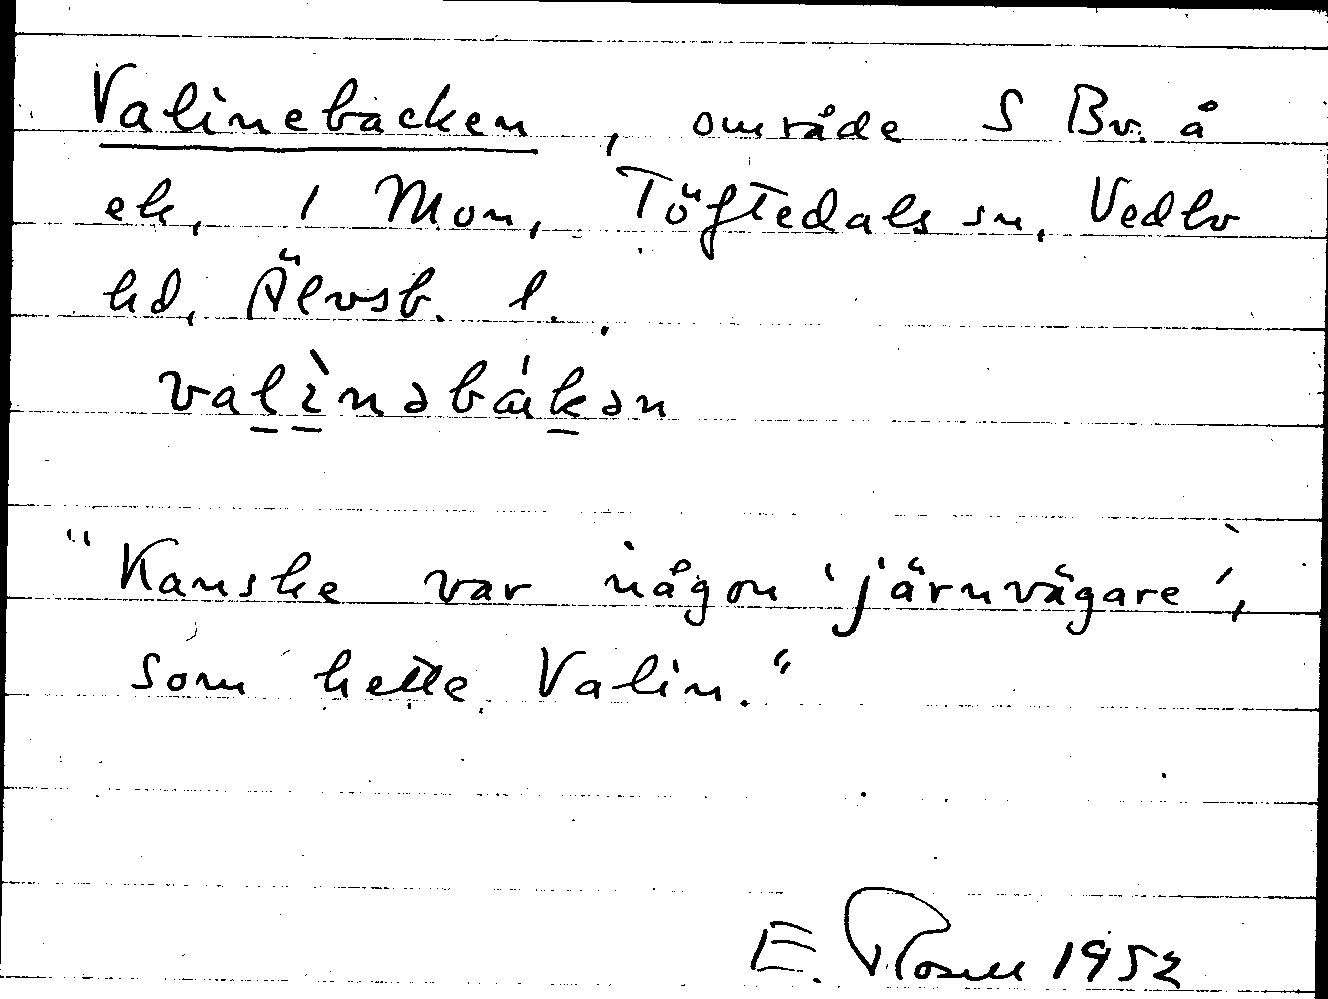 Valinebacken, område S Bv. å
ek, 1 Mon, Töftedals sn, Vedbo
hd, Älvsb. l.
valìnəbákən
"Kanske var någon 'järnvägare',
som hette Valin."
E. Rosell 1952